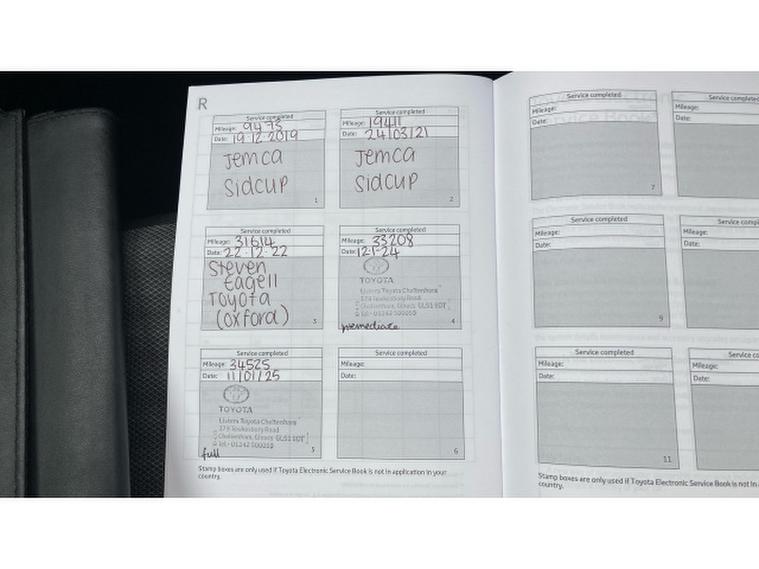 R
Service completed
Mileage: 9473
Date: 19.12.2019
Jemca
Sidcup
1
Service completed
Mileage: 19411
Date: 24/03/21
Jemca
Sidcup
2
Service completed
Mileage: 31614
Date: 22.12.22
Steven
Eagell
Toyota
(Oxford)
3
Service completed
Mileage: 33208
Date: 12-1-24
TOYOTA
Listers Toyota Cheltenham
179 Tewkesbury Road
Cheltenham, Gloucs GL51 9DT
Tel: 01242
4
Service completed
Mileage: 34525
Date: 11/01/25
TOYOTA
Listers Toyota Cheltenham
179 Tewkesbury Road
Cheltenham, Gloucs GL51 9DT
Tel: 01242
full
5
Service completed
Mileage:
Date:
6
Stamp boxes are only used if Toyota Electronic Service Book is not in application in your
country.
Service completed
Mileage:
Date:
7
Mileage:
Date:
Service completed
Mileage:
Date:
9
Service comp
Mileage:
Date:
Service completed
Mileage:
Date:
11
Service co
Mileage:
Date:
Stamp boxes are only used if Toyota Electronic Service Book is not in
country.